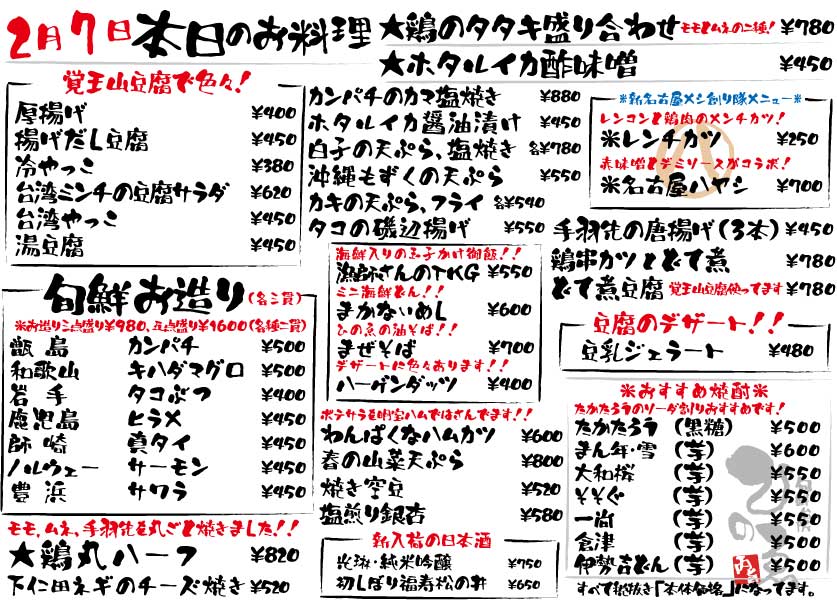 2月7日 本日のお料理
★鶏のタタキ盛り合わせ モモとムネの二種! ¥780
★ホタルイカ酢味噌 ¥450
覚王山豆腐で色々!
厚揚げ ¥400
揚げだし豆腐 ¥450
冷やっこ ¥380
台湾ミンチの豆腐サラダ ¥620
台湾やっこ ¥450
湯豆腐 ¥450
旬鮮お造り(各二貫)
※お造り三点盛り¥980、五点盛り¥1600(各種二貫)
甑島 カンパチ ¥500
和歌山 キハダマグロ ¥500
岩手 タコぶつ ¥400
鹿児島 ヒラメ ¥450
師崎 真タイ ¥450
ノルウェー サーモン ¥450
豊浜 サワラ ¥450
モモ、ムネ、手羽先を丸ごと焼きました!!
★鶏丸ハーフ ¥820
下仁田ネギのチーズ焼き ¥520
カンパチのカマ塩焼き ¥880
ホタルイカ醤油漬け ¥450
白子の天ぷら、塩焼き 各¥780
沖縄もずくの天ぷら ¥550
カキの天ぷら、フライ 各¥540
タコの磯辺揚げ ¥550
海鮮入りの玉子かけ御飯!!
漁師さんのTKG ¥550
ミニ海鮮どん!!
まかないめし ¥600
ひの魚の油そば!!
まぜそば ¥700
デザートに色々あります!!
ハーゲンダッツ ¥400
ポテサラを明宝ハムではさんでます!!
わんぱくなハムカツ ¥600
春の山菜天ぷら ¥800
焼き空豆 ¥520
塩煎り銀杏 ¥580
新入荷の日本酒
純米吟醸 ¥750
初しぼり福寿松の井 ¥650
※新名古屋メシ創り隊メニュー※
レンコンと鶏肉のメンチカツ!
※レンチカツ ¥250
赤味噌とデミソースがコラボ!
※名古屋ハヤシ ¥700
手羽先の唐揚げ(3本) ¥450
鶏串カツとどて煮 ¥780
どて煮豆腐 覚王山豆腐使ってます ¥780
豆腐のデザート!!
豆乳ジェラート ¥480
※おすすめ焼酎※
たかたろうのソーダ割りおすすめです!
たかたろう (黒糖) ¥500
まん年・雪 (芋) ¥600
大和桜 (芋) ¥550
そそぐ (芋) ¥550
一尚 (芋) ¥550
倉津 (芋) ¥500
伊勢吉どん (芋) ¥550
すべて税抜き「本体価格」になってます。